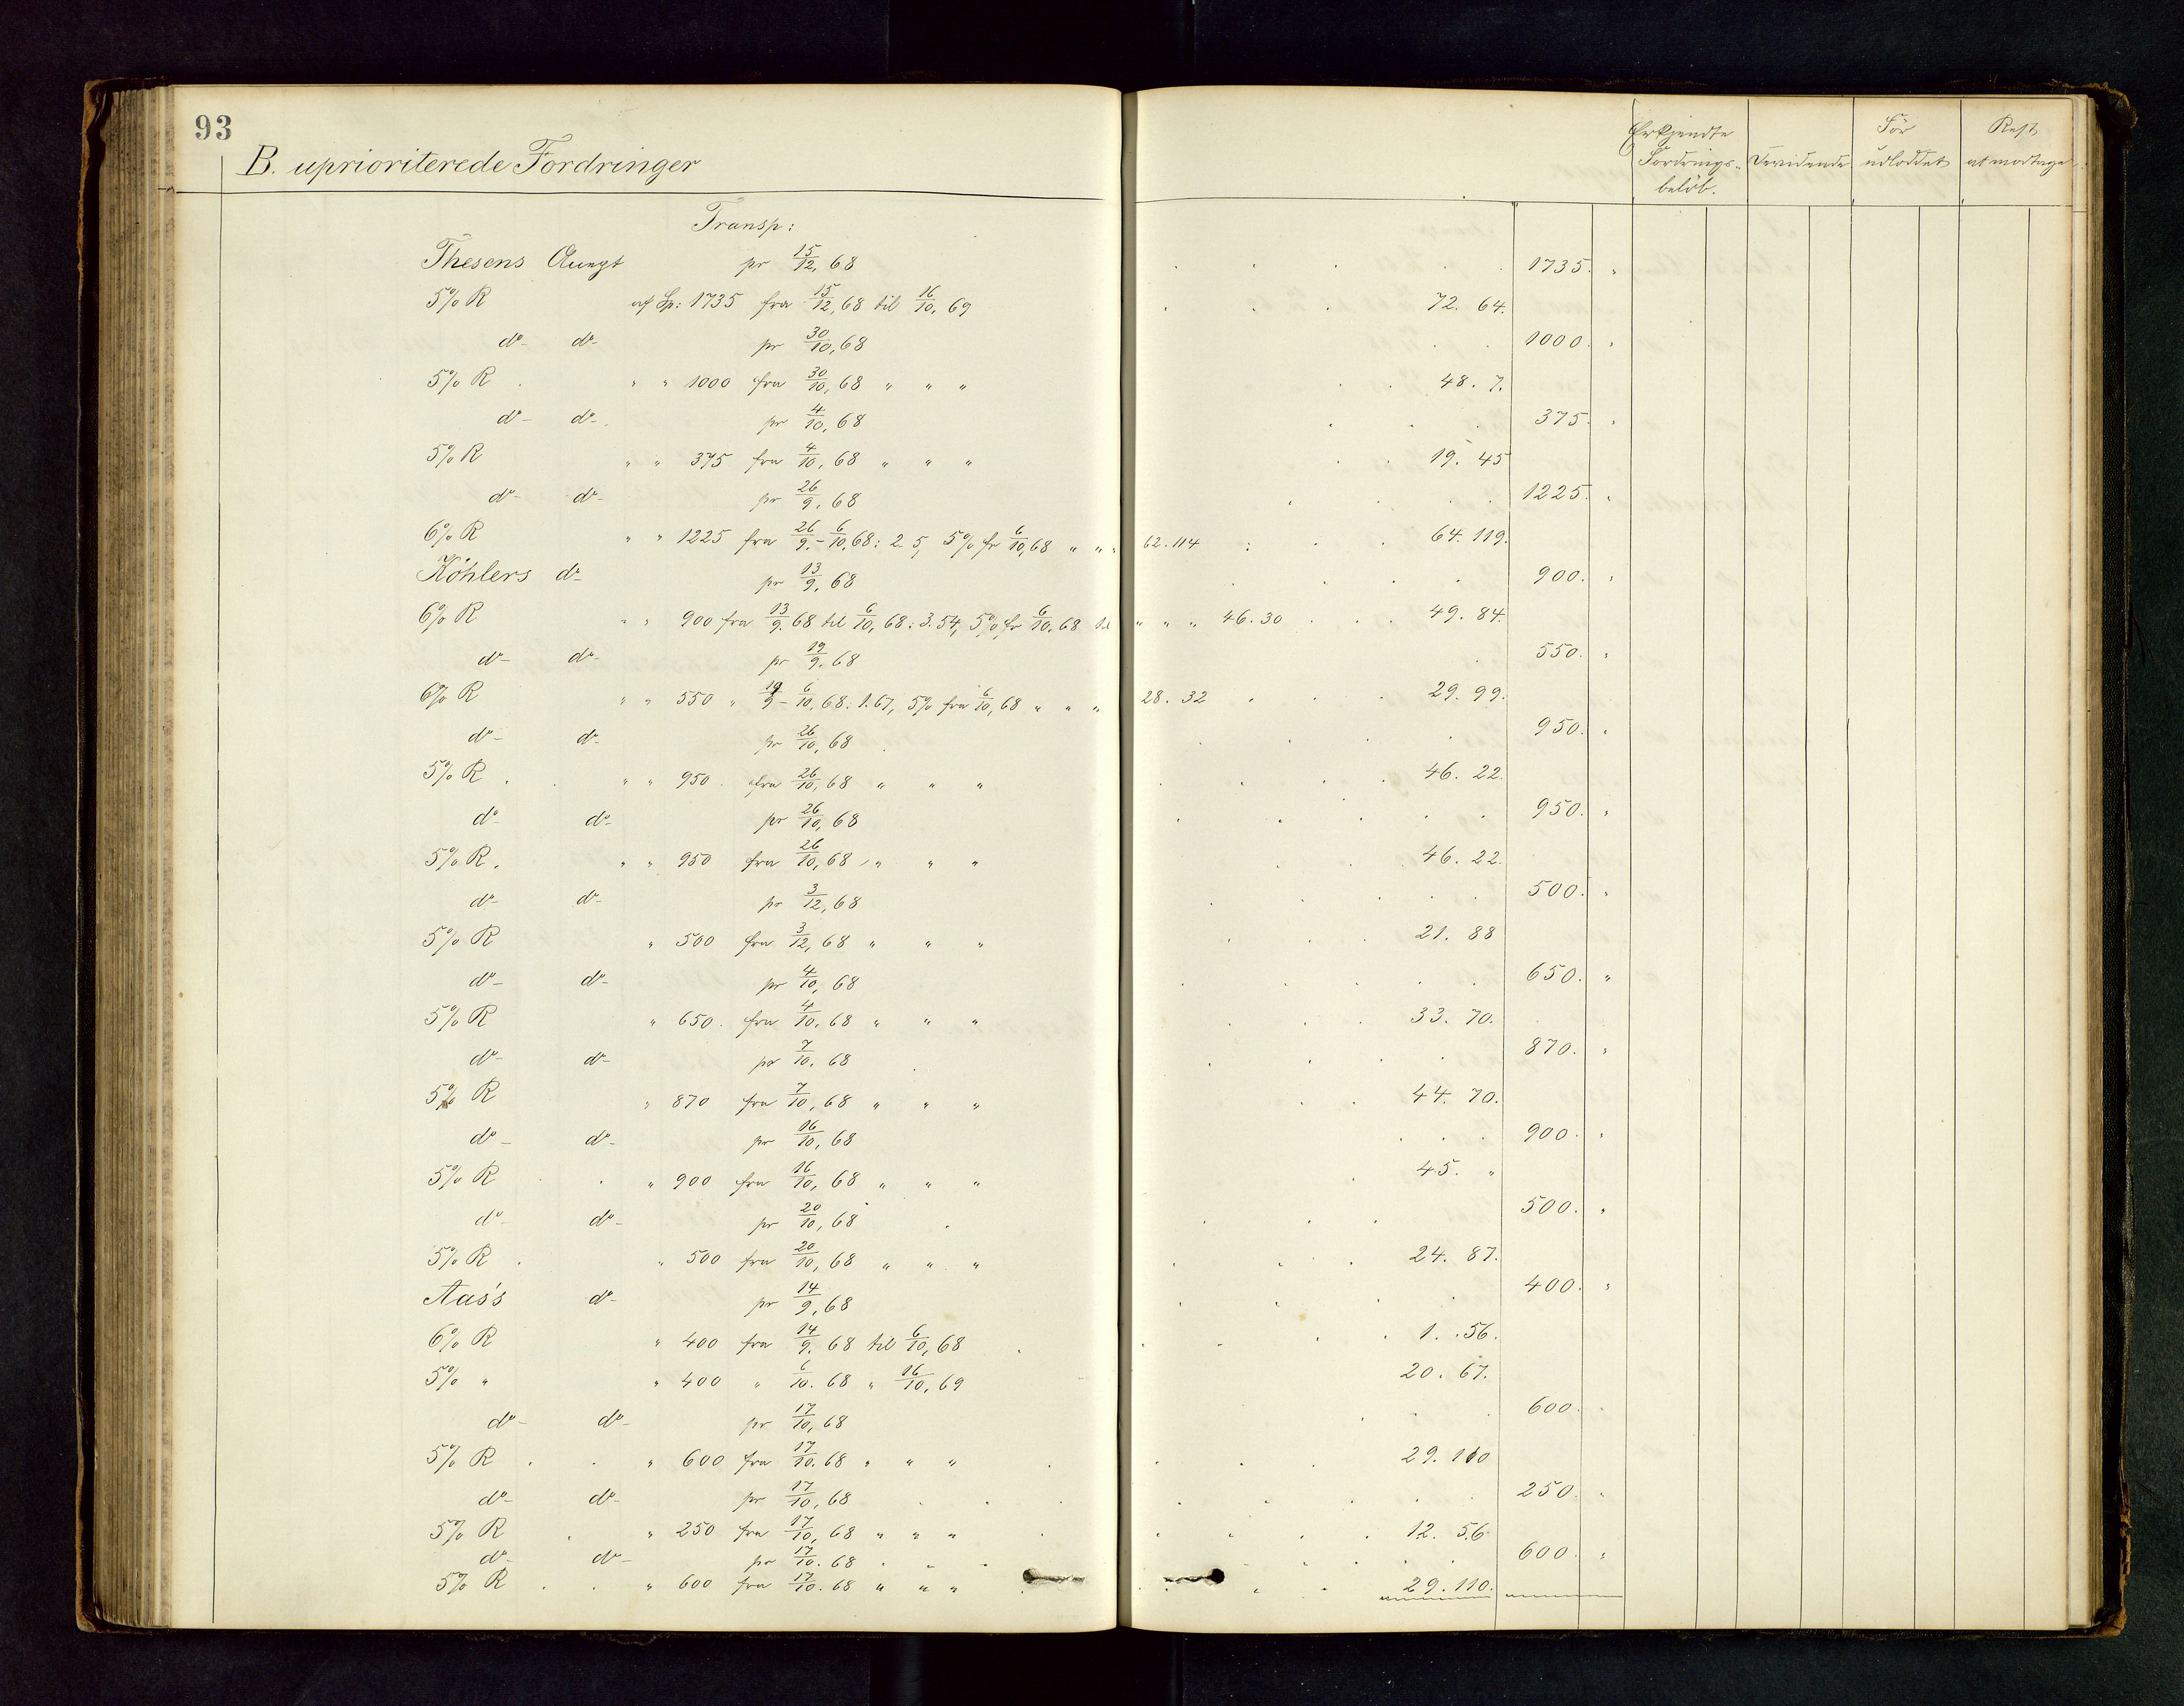 93
B. uprioriterede Fordringer
Erkjendte Fordrings- beløb.
Devidende
Før udloddet
Rest at modtage
Transp:
Thesens Accept pr 15/12, 68 1735. "
5% R af Sp: 1735 fra 15/12, 68 til 16/10, 69 72. 64.
do- do- pr 30/10, 68 1000. "
5% R " " 1000 fra 30/10, 68 " " " 48. 7.
do- do- pr 4/10, 68 375. "
5% R " " 375 fra 4/10, 68 " " " 19. 45
do- do- pr 26/9, 68 1225. "
6% R " " 1225 fra 26/9 - 6/10, 68: 2. 5, 5% fr 6/10, 68 " " " 62. 114 64. 119.
Köhlers do- pr 13/9, 68 900. "
6% R " " 900 fra 13/9. 68 til 6/10, 68: 3. 54, 5% fr 6/10, 68 til " " " 46. 30 49. 84.
do- do- pr 19/9. 68 550. "
6% R " " 550 " 19/9 - 6/10, 68: 1. 67, 5% fra 6/10, 68 " " " 28. 32 29. 99.
do- do- pr 26/10, 68 950. "
5% R " " 950 fra 26/10, 68 " " " 46. 22.
do- do- pr 26/10, 68 950. "
5% R. " " 950 fra 26/10, 68 " " " 46. 22.
do- do- pr 3/12, 68 500. "
5% R " 500 fra 3/12, 68 " " " 21. 88
do- do- pr 4/10, 68 650. "
5% R " 650 fra 4/10, 68 " " " 33. 70.
do- do- pr 7/10, 68 870. "
5% R " 870 fra 7/10, 68 " " " 44. 70.
do- do- pr 16/10, 68 900. "
5% R " 900 fra 16/10, 68 " " " 45. "
do- do- pr 20/10, 68 500. "
5% R " 500 fra 20/10, 68 " " " 24. 87.
Aas's do- pr 14/9, 68 400. "
6% R " 400 fra 14/9. 68 til 6/10, 68 1. 56.
5% " " 400 " 6/10. 68 " 16/10, 69 20. 67.
do- do- pr 17/10, 68 600. "
5% R " 600 fra 17/10. 68 " " " 29. 110
do- do- pr 17/10, 68 250. "
5% R " 250 fra 17/10, 68 " " " 12. 56.
do- do- pr 17/10. 68 600. "
5% R " 600 fra 17/10. 68 " " " 29. 110.